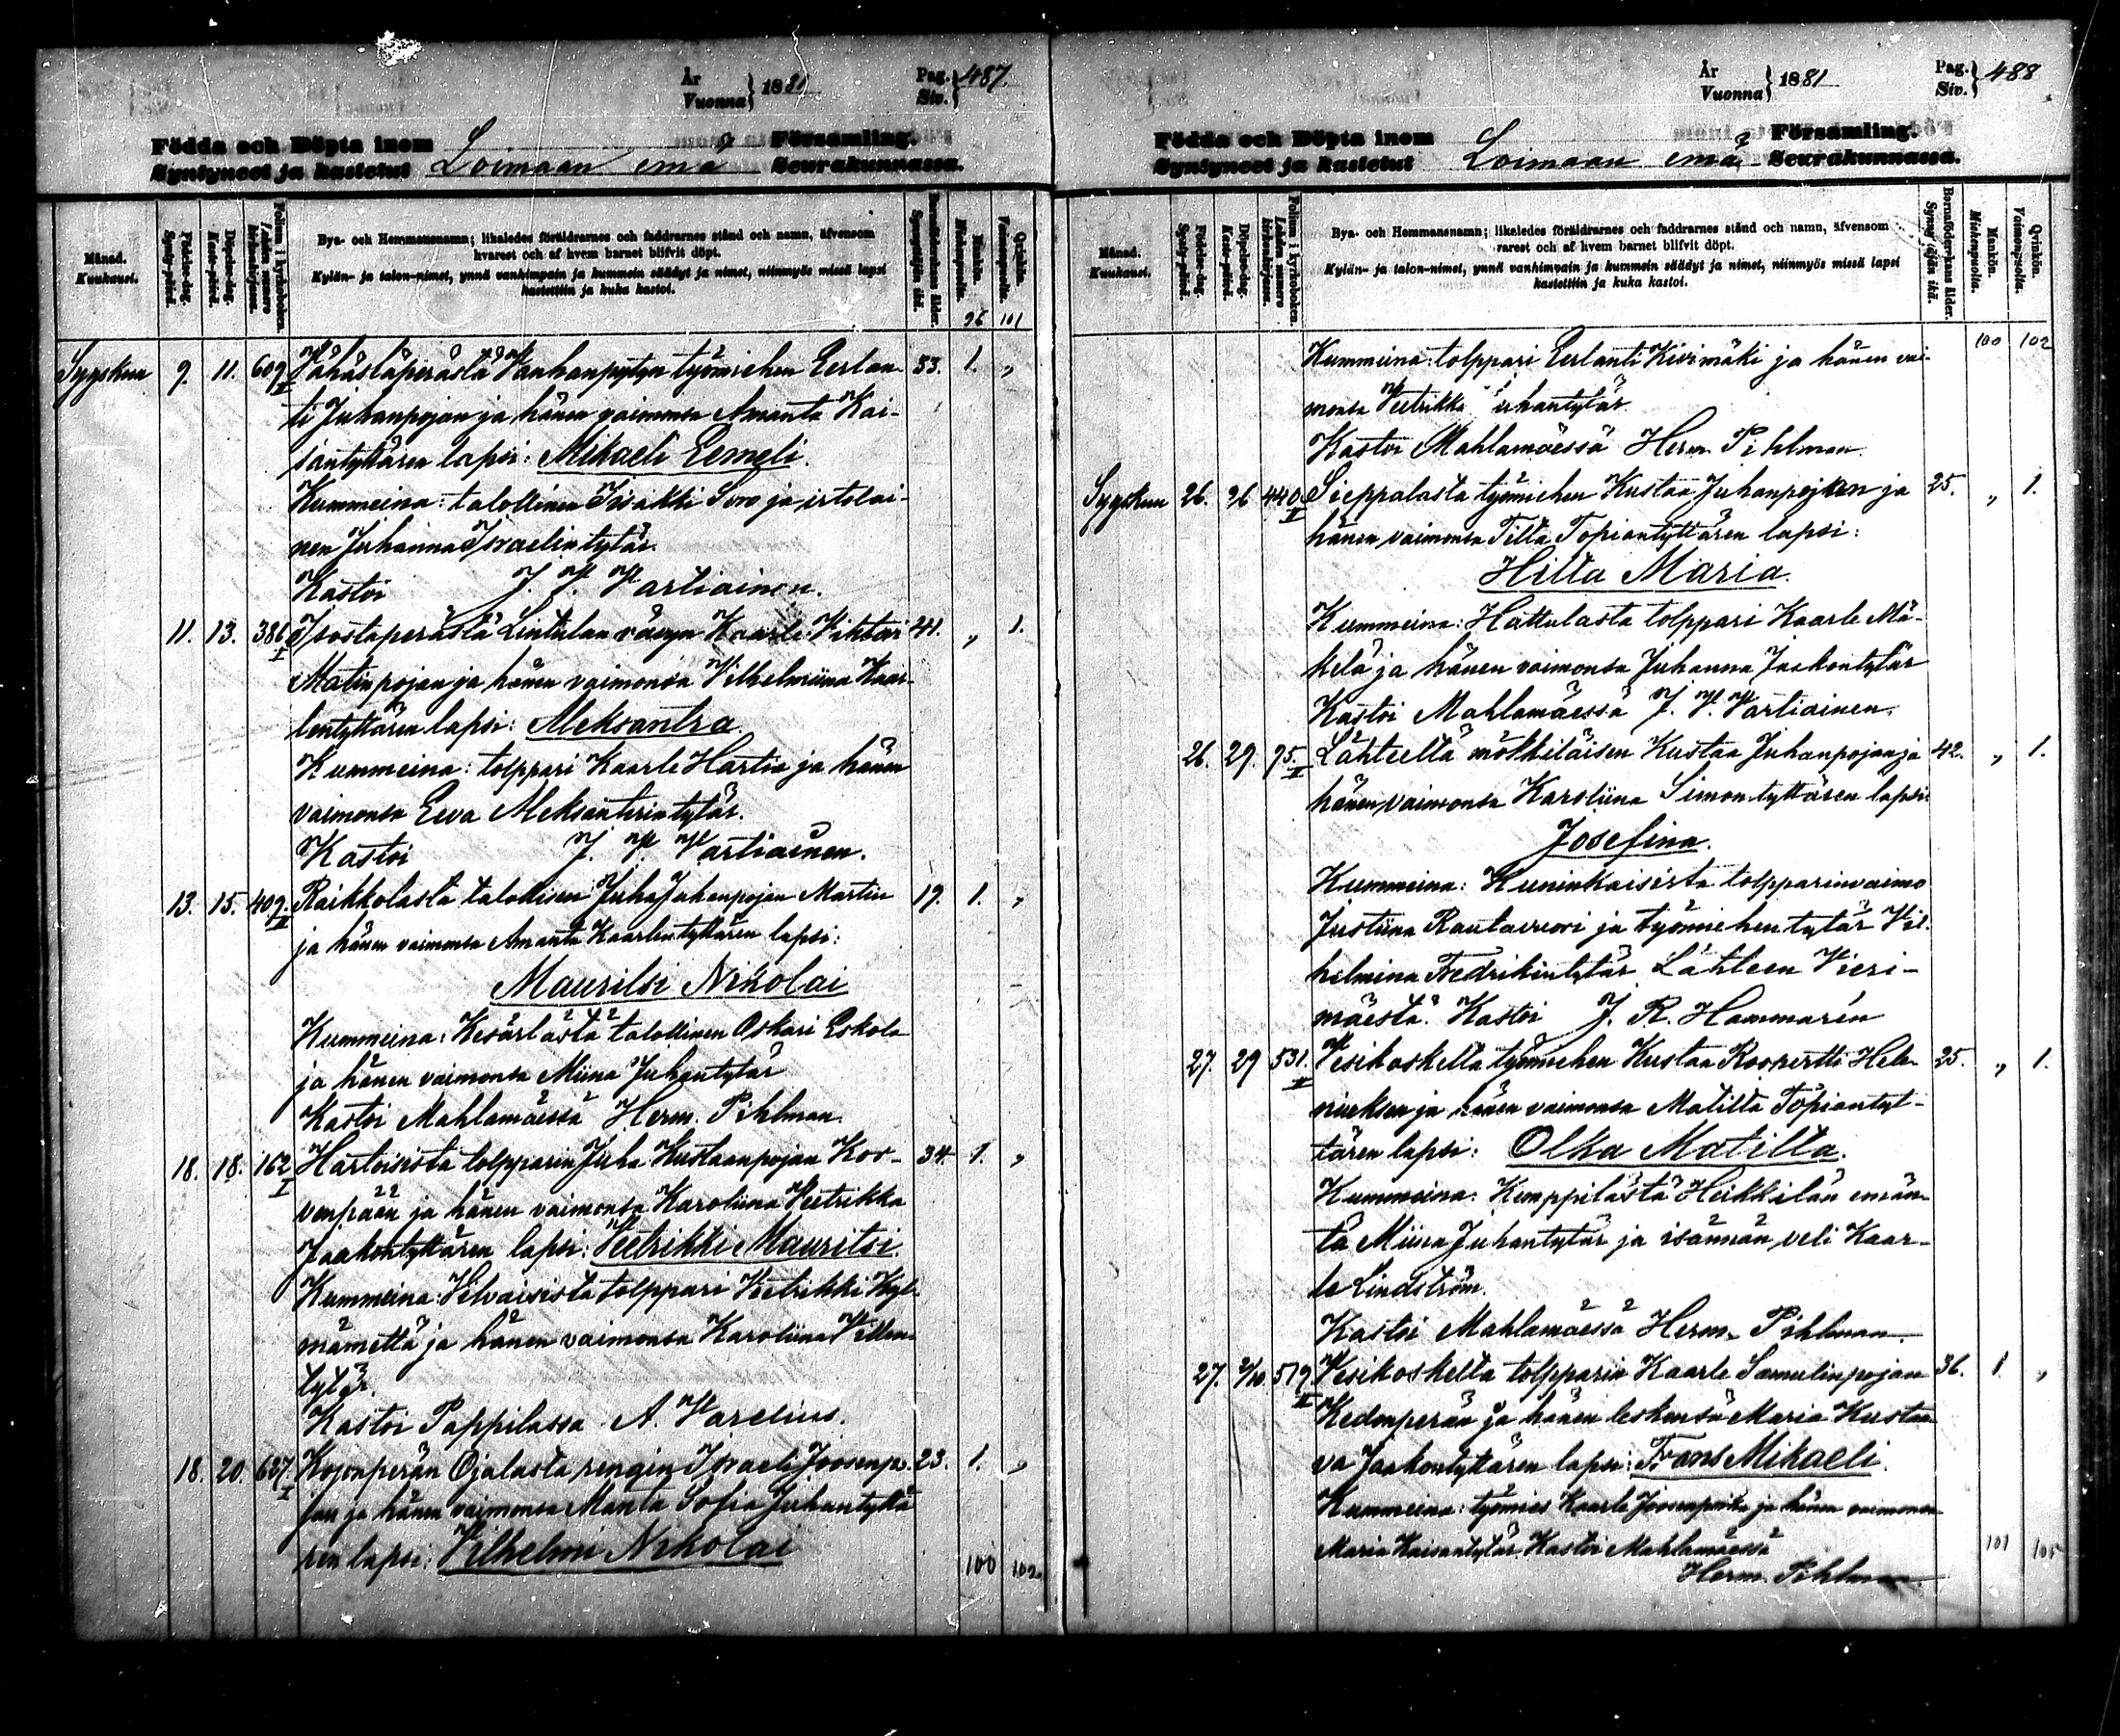 År
Vuonna } 1881 Pag. Siv. } 487.
Födda och Döpta inom
Syntyneet ja kastetut Loimaan emä Församling. Seurakunnassa.
Månad. Kuukausi.
Födelse-dag. Synty-päivä.
Döpelse-dag. Kaste-päivä.
Folium i kyrkoboken. Lehden numero kirkonkirjassa.
Bya- och Hemmansnamn; likaledes föräldrarnes och faddrarnes stånd och namn, äfvensom
hvarest och af hvem barnet blifvit döpt.
Kylän- ja talon-nimet, ynnä vanhimpain ja kummein säädyt ja nimet, niinmyös missä lapsi
kastettiin ja kuka kastoi.
Barnaföderskans ålder. Synnyttäjän ikä.
Mankön. Miehenpuolia.
Qvinkön. Vaimonpuolia.
96 101
Syyskuu 9. 11. 609 I Vähästäperästä Vanhanpytyn työmiehen Eerlan- 53. 1. „
ti Juhanpojan ja hänen vaimonsa Amanta Kai-
santyttären lapsi: Mikaeli Eemeli.
Kummeina: talollinen Iisakki Soro ja irtolai-
nen Juhanna Israelintytär.
Kastoi J. V. Vartiainen.
11. 13. 386 I Ipostaperästä Lintulan vävyn Kaarle Vihtori 41. „ 1.
Matinpojan ja hänen vaimonsa Vilhelmiina Kaar-
lentyttären lapsi: Aleksantra.
Kummeina: tolppari Kaarle Hartia ja hänen
vaimonsa Eeva Aleksanterintytär.
Kastoi J. V. Vartiainen.
13. 15. 409. II Raikkolasta talollisen Juha Juhanpojan Martin 19. 1. „
ja hänen vaimonsa Amanta Kaarlentyttären lapsi:
Mauritsi Nikolai
Kummeina: Kesärlästä talollinen Oskari Eskola
ja hänen vaimonsa Miina Juhantytär
Kastoi Mahlamäessä Herm. Pihlman.
18. 18. 162 I Hartoisista tolpparin Juha Kustaanpojan Kor- 34. 1. „
venpään ja hänen vaimonsa Karoliina Veetrikka
Jaakontyttären lapsi: Veetrikki Mauritsi.
Kummeina: Vilvaisista tolppari Veetrikki Kyl-
mämettä ja hänen vaimonsa Karoliina Villen-
tytär.
Kastoi Pappilassa A. Varelius.
18. 20. 627. I Kojonperän Ojalasta rengin Israeli Joosenpo- 23. 1. „
jan ja hänen vaimonsa Manta Sofia Juhantyttä
ren lapsi: Vilhelmi Nikolai
100 102.
År
Vuonna } 1881 Pag. Siv. } 488
Födda och Döpta inom
Syntyneet ja kastetut Loimaan emä Församling. Seurakunnassa.
Månad. Kuukausi.
Födelse-dag. Synty-päivä.
Döpelse-dag. Kaste-päivä.
Folium i kyrkoboken. Lehden numero kirkonkirjassa.
Bya- och Hemmansnamn; likaledes föräldrarnes och faddrarnes stånd och namn, äfvensom
varest och af hvem barnet blifvit döpt.
Kylän- ja talon-nimet, ynnä vanhimpain ja kummein säädyt ja nimet, niinmyös missä lapsi
kastettiin ja kuka kastoi.
Barnaföderskans ålder. Synnyttäjän ikä.
Mankön. Miehenpuolia.
Qvinkön. Vaimonpuolia.
100 102
Kummeina: tolppari Eerlanti Kivimäki ja hänen vai-
monsa Veetrikka Juhantytär.
Kastoi Mahlamäessä Herm. Pihlman.
Syyskuu 26. 26 440 II Sieppalasta työmiehen Kustaa Juhanpojan ja 25. „ 1.
hänen vaimonsa Tilta Topiantyttären lapsi:
Hilta Maria.
Kummeina: Hattulasta tolppari Kaarle Mä-
kelä ja hänen vaimonsa Juhanna Jaakontytär
Kastoi Mahlamäessä J. V. Vartiainen.
26. 29. 95. II Lähteeltä mökkiläisen Kustaa Juhanpojan ja 42. „ 1.
hänen vaimonsa Karoliina Simontyttären lapsi
Josefina.
Kummeina: Kuninkaisista tolpparinvaimo
Justiina Rautavuori ja työmiehen tytär Vil-
helmina Fredrikintytär Lähteen Vieri-
mäestä. Kastoi J. R. Hammarén
27. 29 531. II Vesikoskelta työmiehen Kustaa Roopertti Hele- 25. „ 1.
niuksen ja hänen vaimonsa Matilta Topiantyt-
tären lapsi: Olka Matilta.
Kummeina: Kemppilästä Heikkilän emän-
tä Miina Juhantytär ja isännän veli Kaar-
le Lindström.
Kastoi Mahlamäessä Herm. Pihlman.
27. 2/10 519 II Vesikoskelta tolpparin Kaarle Samulinpojan 36. 1 „
Kedonperän ja hänen leskensä Maria Kustaa-
va Jaakontyttären lapsi: Frans Mikaeli.
Kummeina: työmies Kaarle Joosenpoika ja hänen vaimonsa
Maria Kaisantytär. Kastoi Mahlamäessä
Herm. Pihlman.
101 105